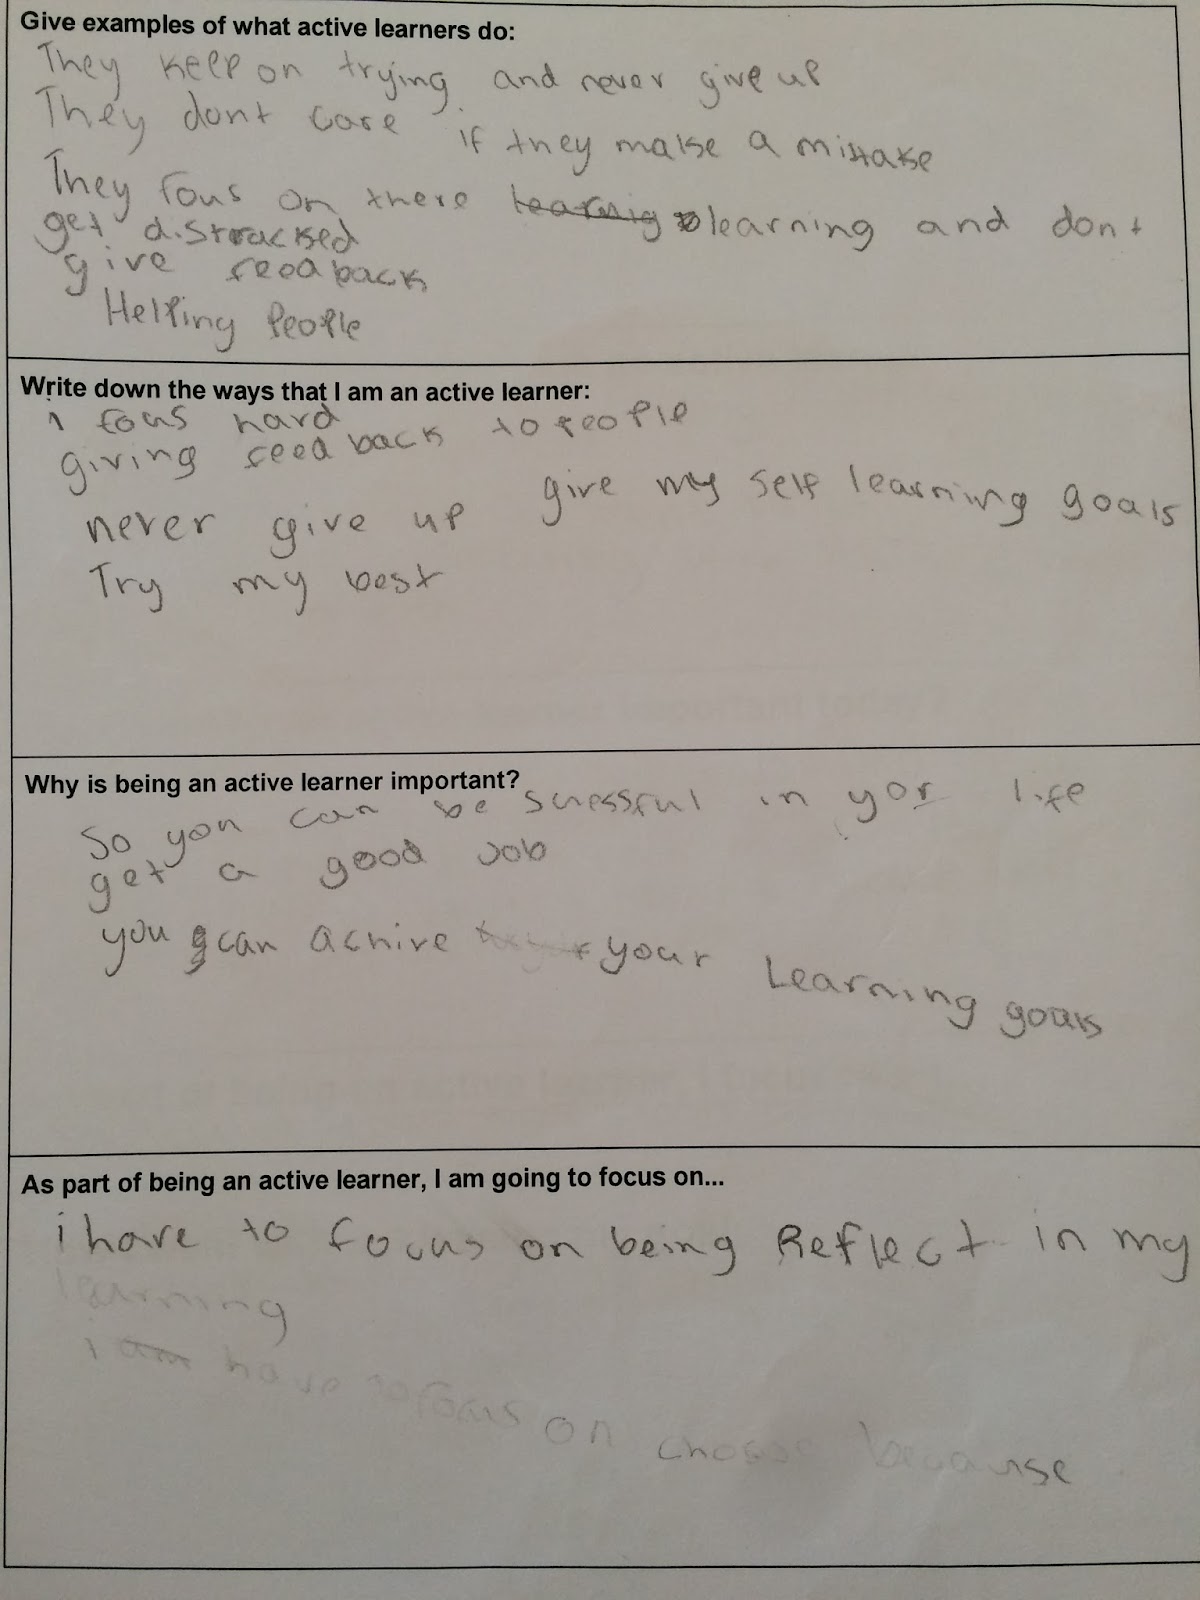 Give examples of what active learners do:
They keep on trying and never give up
They dont care if they make a mistake
They fous on there learnig learning and dont
get distracked
give feedback
Helping People
Write down the ways that I am an active learner:
I fous hard
giving feedback to people
give my self learning goals
never give up
Try my best
Why is being an active learner important?
So you can be sucessful in yor life
get a good Job
you can achive your Learning goals
As part of being an active learner, I am going to focus on...
i have to focus on being Reflect in my
learning
i am have to focus on because